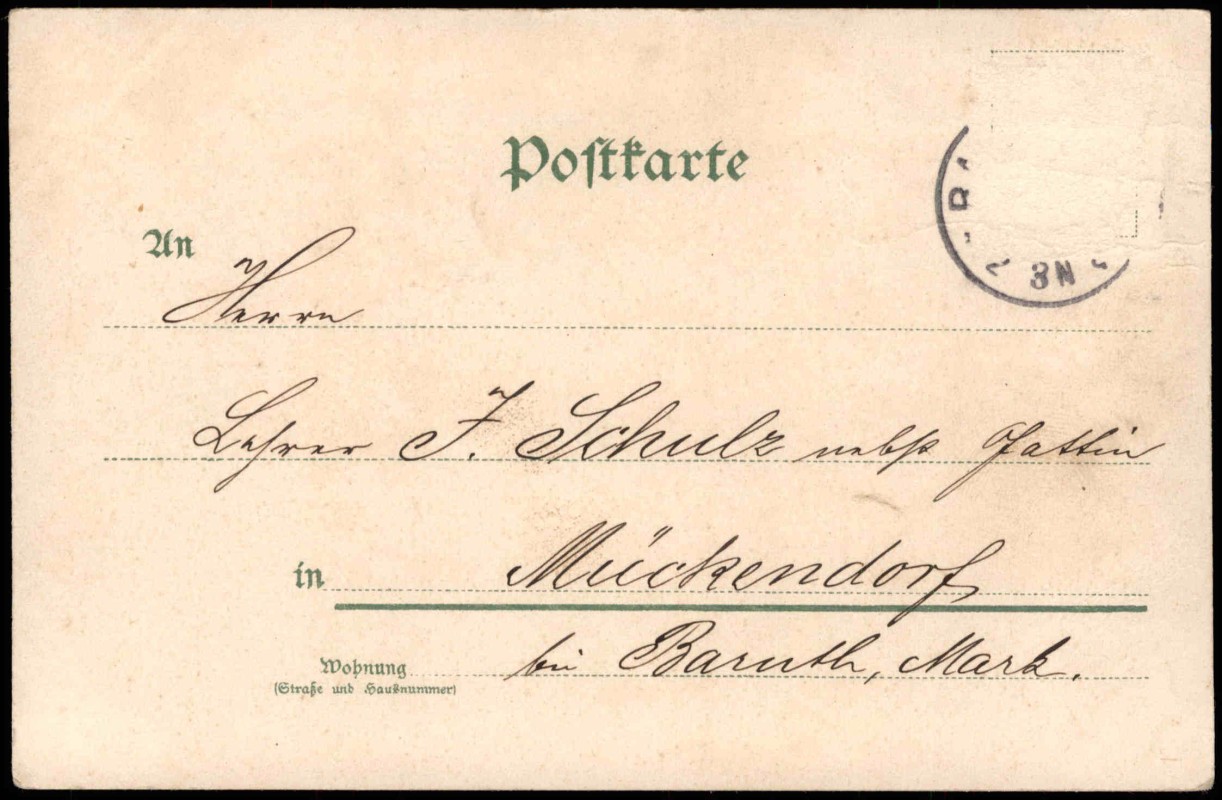 Postkarte
An
Herrn
Lehrer J. Schulz nebst Gattin
in Mückendorf
Wohnung bei Baruth, Mark.
(Straße und Hausnummer)
3N